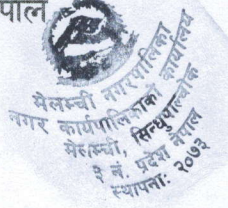 पाल
मेलम्ची नगरपालिका
नगर कार्यपालिकाको कार्यालय
मेलम्ची, सिन्धुपाल्चोक
३ नं. प्रदेश नेपाल
स्थापना: २०७३